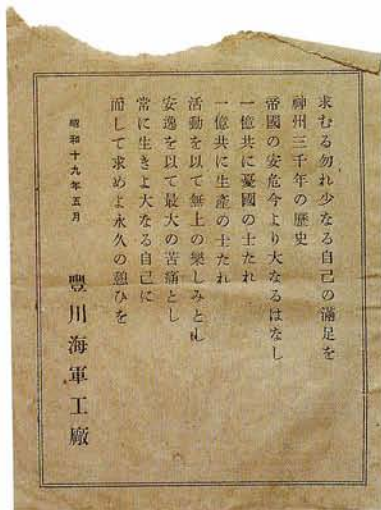 求むる勿れ少なる自己の滿足を
神州三千年の歴史
帝國の安危今より大なるはなし
一億共に憂國の士たれ
一億共に生產の士たれ
活動を以て無上の樂しみとし
安逸を以て最大の苦痛とし
常に生きよ大なる自己に
而して求めよ永久の憩ひを
昭和十九年五月
豐川海軍工廠